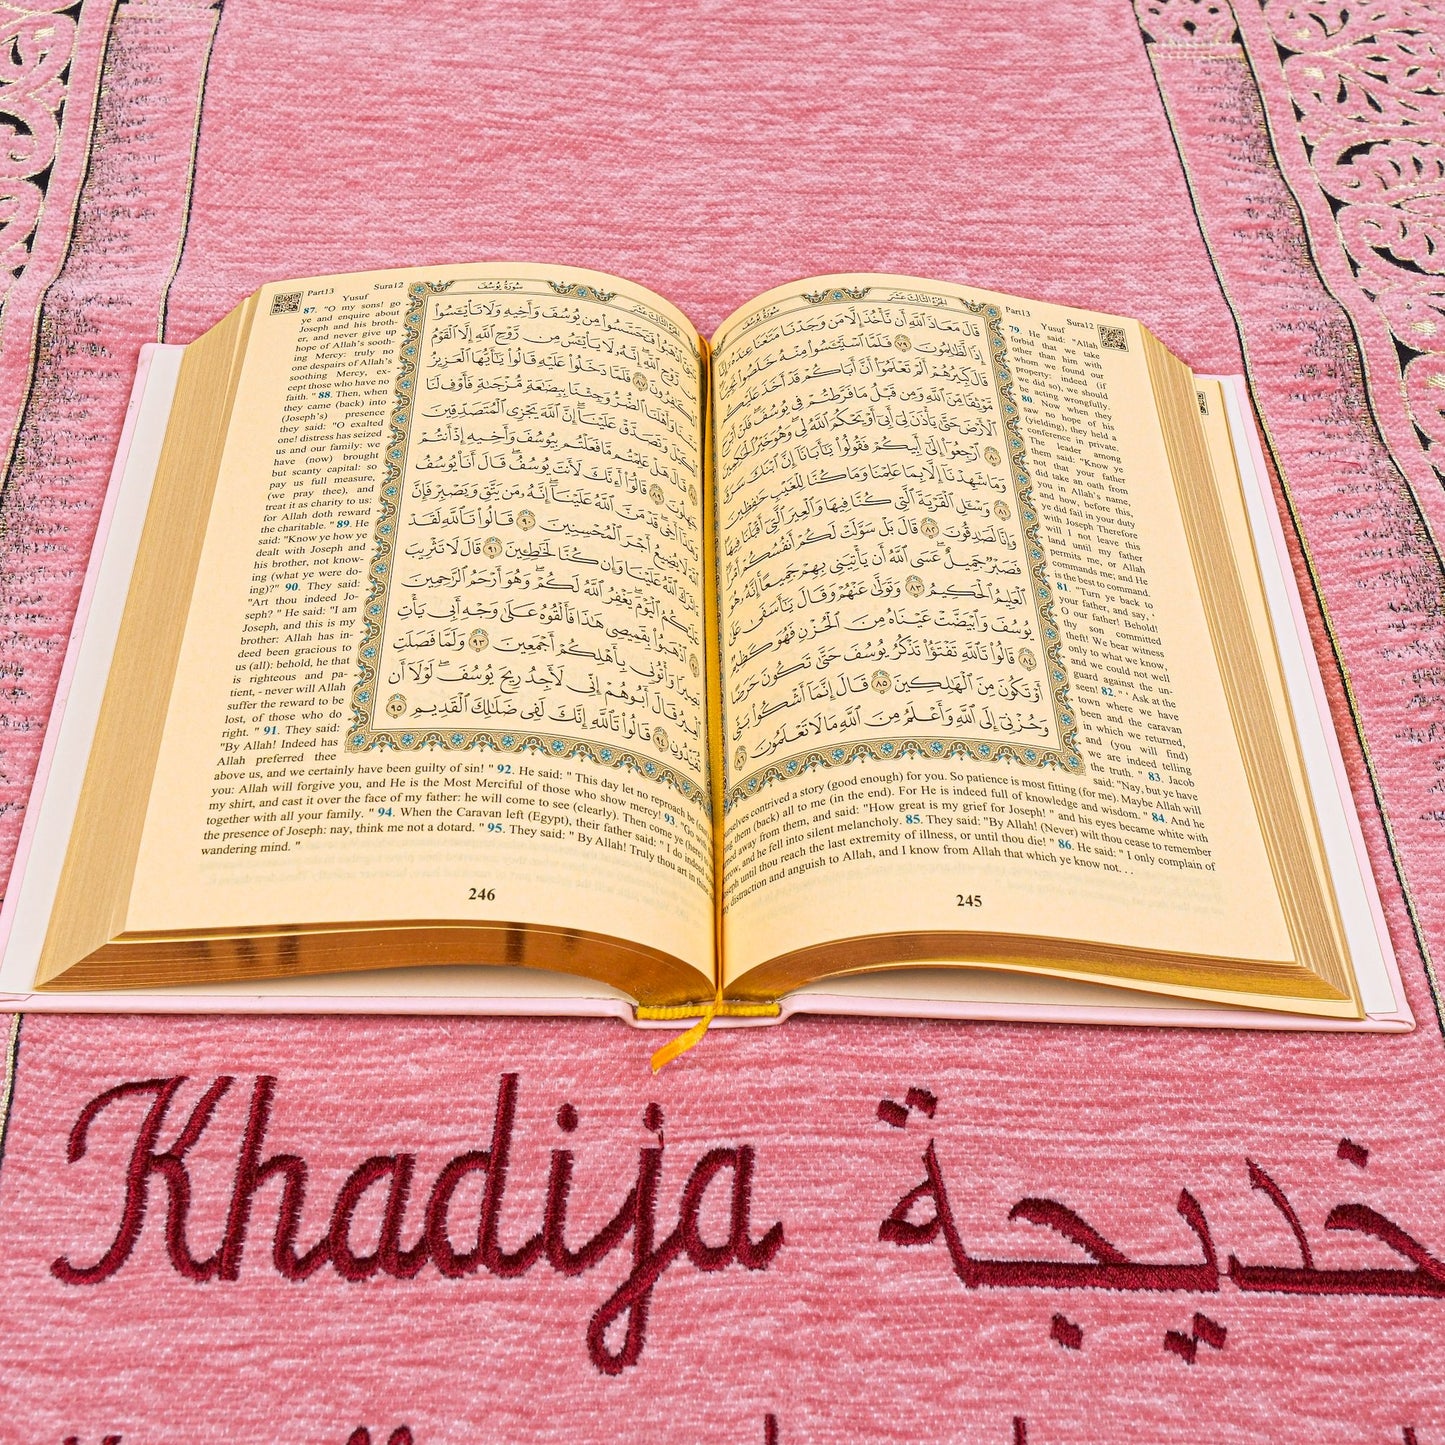 Part13 Sura12
Yusuf
سورة يوسف
الجزء الثالث عشر
قَالَ مَعَاذَ ٱللَّهِ أَن نَّأْخُذَ إِلَّا مَن وَجَدْنَا مَتَٰعَنَا عِندَهُۥٓ
إِذًا لَّظَٰلِمُونَ ٧٩ فَلَمَّا ٱسْتَيْـَٔسُوا۟ مِنْهُ خَلَصُوا۟ نَجِيًّا
قَالَ كَبِيرُهُمْ أَلَمْ تَعْلَمُوٓا۟ أَنَّ أَبَاكُمْ قَدْ أَخَذَ عَلَيْكُم
مَّوْثِقًا مِّنَ ٱللَّهِ وَمِن قَبْلُ مَا فَرَّطتُمْ فِى يُوسُفَ فَلَنْ أَبْرَحَ
ٱلْأَرْضَ حَتَّىٰ يَأْذَنَ لِىٓ أَبِىٓ أَوْ يَحْكُمَ ٱللَّهُ لِى وَهُوَ خَيْرُ ٱلْحَٰكِمِينَ
٨٠ ٱرْجِعُوٓا۟ إِلَىٰٓ أَبِيكُمْ فَقُولُوا۟ يَٰٓأَبَانَآ إِنَّ ٱبْنَكَ سَرَقَ
وَمَا شَهِدْنَآ إِلَّا بِمَا عَلِمْنَا وَمَا كُنَّا لِلْغَيْبِ حَٰفِظِينَ
٨١ وَسْـَٔلِ ٱلْقَرْيَةَ ٱلَّتِى كُنَّا فِيهَا وَٱلْعِيرَ ٱلَّتِىٓ أَقْبَلْنَا فِيهَا
وَإِنَّا لَصَٰدِقُونَ ٨٢ قَالَ بَلْ سَوَّلَتْ لَكُمْ أَنفُسُكُمْ أَمْرًا
فَصَبْرٌ جَمِيلٌ عَسَى ٱللَّهُ أَن يَأْتِيَنِى بِهِمْ جَمِيعًا إِنَّهُۥ هُوَ
ٱلْعَلِيمُ ٱلْحَكِيمُ ٨٣ وَتَوَلَّىٰ عَنْهُمْ وَقَالَ يَٰٓأَسَفَىٰ عَلَىٰ
يُوسُفَ وَٱبْيَضَّتْ عَيْنَاهُ مِنَ ٱلْحُزْنِ فَهُوَ كَظِيمٌ
٨٤ قَالُوا۟ تَٱللَّهِ تَفْتَؤُا۟ تَذْكُرُ يُوسُفَ حَتَّىٰ تَكُونَ حَرَضًا
أَوْ تَكُونَ مِنَ ٱلْهَٰلِكِينَ ٨٥ قَالَ إِنَّمَآ أَشْكُوا۟ بَثِّى
وَحُزْنِىٓ إِلَى ٱللَّهِ وَأَعْلَمُ مِنَ ٱللَّهِ مَا لَا تَعْلَمُونَ ٨٦
79 He said: "Allah
forbid that we take
other than him with
whom we found our
property: indeed (if
we did so), we should
be acting wrongfully.
80 Now when they
saw no hope of his
(yielding), they held a
conference in private.
The leader among
them said: "Know ye
not that your father
did take an oath from
you in Allah's name,
and how, before this,
ye did fail in your duty
with Joseph Therefore
will I not leave this
land until my father
permits me, or Allah
commands me; and He
is the best to command.
81. "Turn ye back to
your father, and say, '
O our father! Behold!
thy son committed
theft! We bear witness
only to what we know,
and we could not well
guard against the un-
seen! 82. " ' Ask at the
town where we have
been and the caravan
in which we returned,
and (you will find)
we are indeed telling
the truth. " 83. Jacob
said: "Nay, but ye have
contrived a story (good enough) for you. So patience is most fitting (for me). Maybe Allah will
them (back) all to me (in the end). For He is indeed full of knowledge and wisdom. " 84. And he
away from them, and said: "How great is my grief for Joseph! " and his eyes became white with
and he fell into silent melancholy. 85. They said: "By Allah! (Never) wilt thou cease to remember
Joseph until thou reach the last extremity of illness, or until thou die! " 86. He said: " I only complain of
my distraction and anguish to Allah, and I know from Allah that which ye know not. . .
245
Part13 Sura12
Yusuf
سورة يوسف
فَتَحَسَّسُوا۟ مِن يُوسُفَ وَأَخِيهِ وَلَا تَا۟يْـَٔسُوا۟
رَّوْحِ ٱللَّهِ إِنَّهُۥ لَا يَا۟يْـَٔسُ مِن رَّوْحِ ٱللَّهِ إِلَّا ٱلْقَوْمُ
ٱلْكَٰفِرُونَ ٨٧ فَلَمَّا دَخَلُوا۟ عَلَيْهِ قَالُوا۟ يَٰٓأَيُّهَا ٱلْعَزِيزُ
وَأَهْلَنَا ٱلضُّرُّ وَجِئْنَا بِبِضَٰعَةٍ مُّزْجَىٰةٍ فَأَوْفِ لَنَا
ٱلْكَيْلَ وَتَصَدَّقْ عَلَيْنَآ إِنَّ ٱللَّهَ يَجْزِى ٱلْمُتَصَدِّقِينَ
قَالَ هَلْ عَلِمْتُم مَّا فَعَلْتُم بِيُوسُفَ وَأَخِيهِ إِذْ أَنتُمْ
جَٰهِلُونَ ٨٩ قَالُوٓا۟ أَءِنَّكَ لَأَنتَ يُوسُفُ قَالَ أَنَا۠ يُوسُفُ
وَهَٰذَآ أَخِى قَدْ مَنَّ ٱللَّهُ عَلَيْنَآ إِنَّهُۥ مَن يَتَّقِ وَيَصْبِرْ فَإِنَّ
لَا يُضِيعُ أَجْرَ ٱلْمُحْسِنِينَ ٩٠ قَالُوا۟ تَٱللَّهِ لَقَدْ
ءَاثَرَكَ ٱللَّهُ عَلَيْنَا وَإِن كُنَّا لَخَٰطِـِٔينَ ٩١ قَالَ لَا تَثْرِيبَ
عَلَيْكُمُ ٱلْيَوْمَ يَغْفِرُ ٱللَّهُ لَكُمْ وَهُوَ أَرْحَمُ ٱلرَّٰحِمِينَ
ٱذْهَبُوا۟ بِقَمِيصِى هَٰذَا فَأَلْقُوهُ عَلَىٰ وَجْهِ أَبِى يَأْتِ
بَصِيرًا وَأْتُونِى بِأَهْلِكُمْ أَجْمَعِينَ ٩٣ وَلَمَّا فَصَلَتِ
ٱلْعِيرُ قَالَ أَبُوهُمْ إِنِّى لَأَجِدُ رِيحَ يُوسُفَ لَوْلَآ أَن
تُفَنِّدُونِ ٩٤ قَالُوا۟ تَٱللَّهِ إِنَّكَ لَفِى ضَلَٰلِكَ ٱلْقَدِيمِ ٩٥
87. "O my sons! go
ye and enquire about
Joseph and his broth-
er, and never give up
hope of Allah's sooth-
ing Mercy: truly no
one despairs of Allah's
soothing Mercy, ex-
cept those who have no
faith. " 88. Then, when
they came (back) into
(Joseph's) presence
they said: "O exalted
one! distress has seized
us and our family: we
have (now) brought
but scanty capital: so
pay us full measure,
(we pray thee), and
treat it as charity to us:
for Allah doth reward
the charitable. " 89. He
said: "Know ye how ye
dealt with Joseph and
his brother, not know-
ing (what ye were do-
ing)?" 90. They said:
"Art thou indeed Jo-
seph? " He said: "I am
Joseph, and this is my
brother: Allah has in-
deed been gracious to
us (all): behold, he that
is righteous and pa-
tient, - never will Allah
suffer the reward to be
lost, of those who do
right. " 91. They said:
"By Allah! Indeed has
Allah preferred thee
above us, and we certainly have been guilty of sin! " 92. He said: " This day let no reproach be
you: Allah will forgive you, and He is the Most Merciful of those who show mercy! 93. "Go
my shirt, and cast it over the face of my father: he will come to see (clearly). Then come ye (here)
together with all your family. " 94. When the Caravan left (Egypt), their father said: " I do indeed
the presence of Joseph: nay, think me not a dotard. " 95. They said: " By Allah! Truly thou art in
wandering mind. "
246
Khadija
خديجة